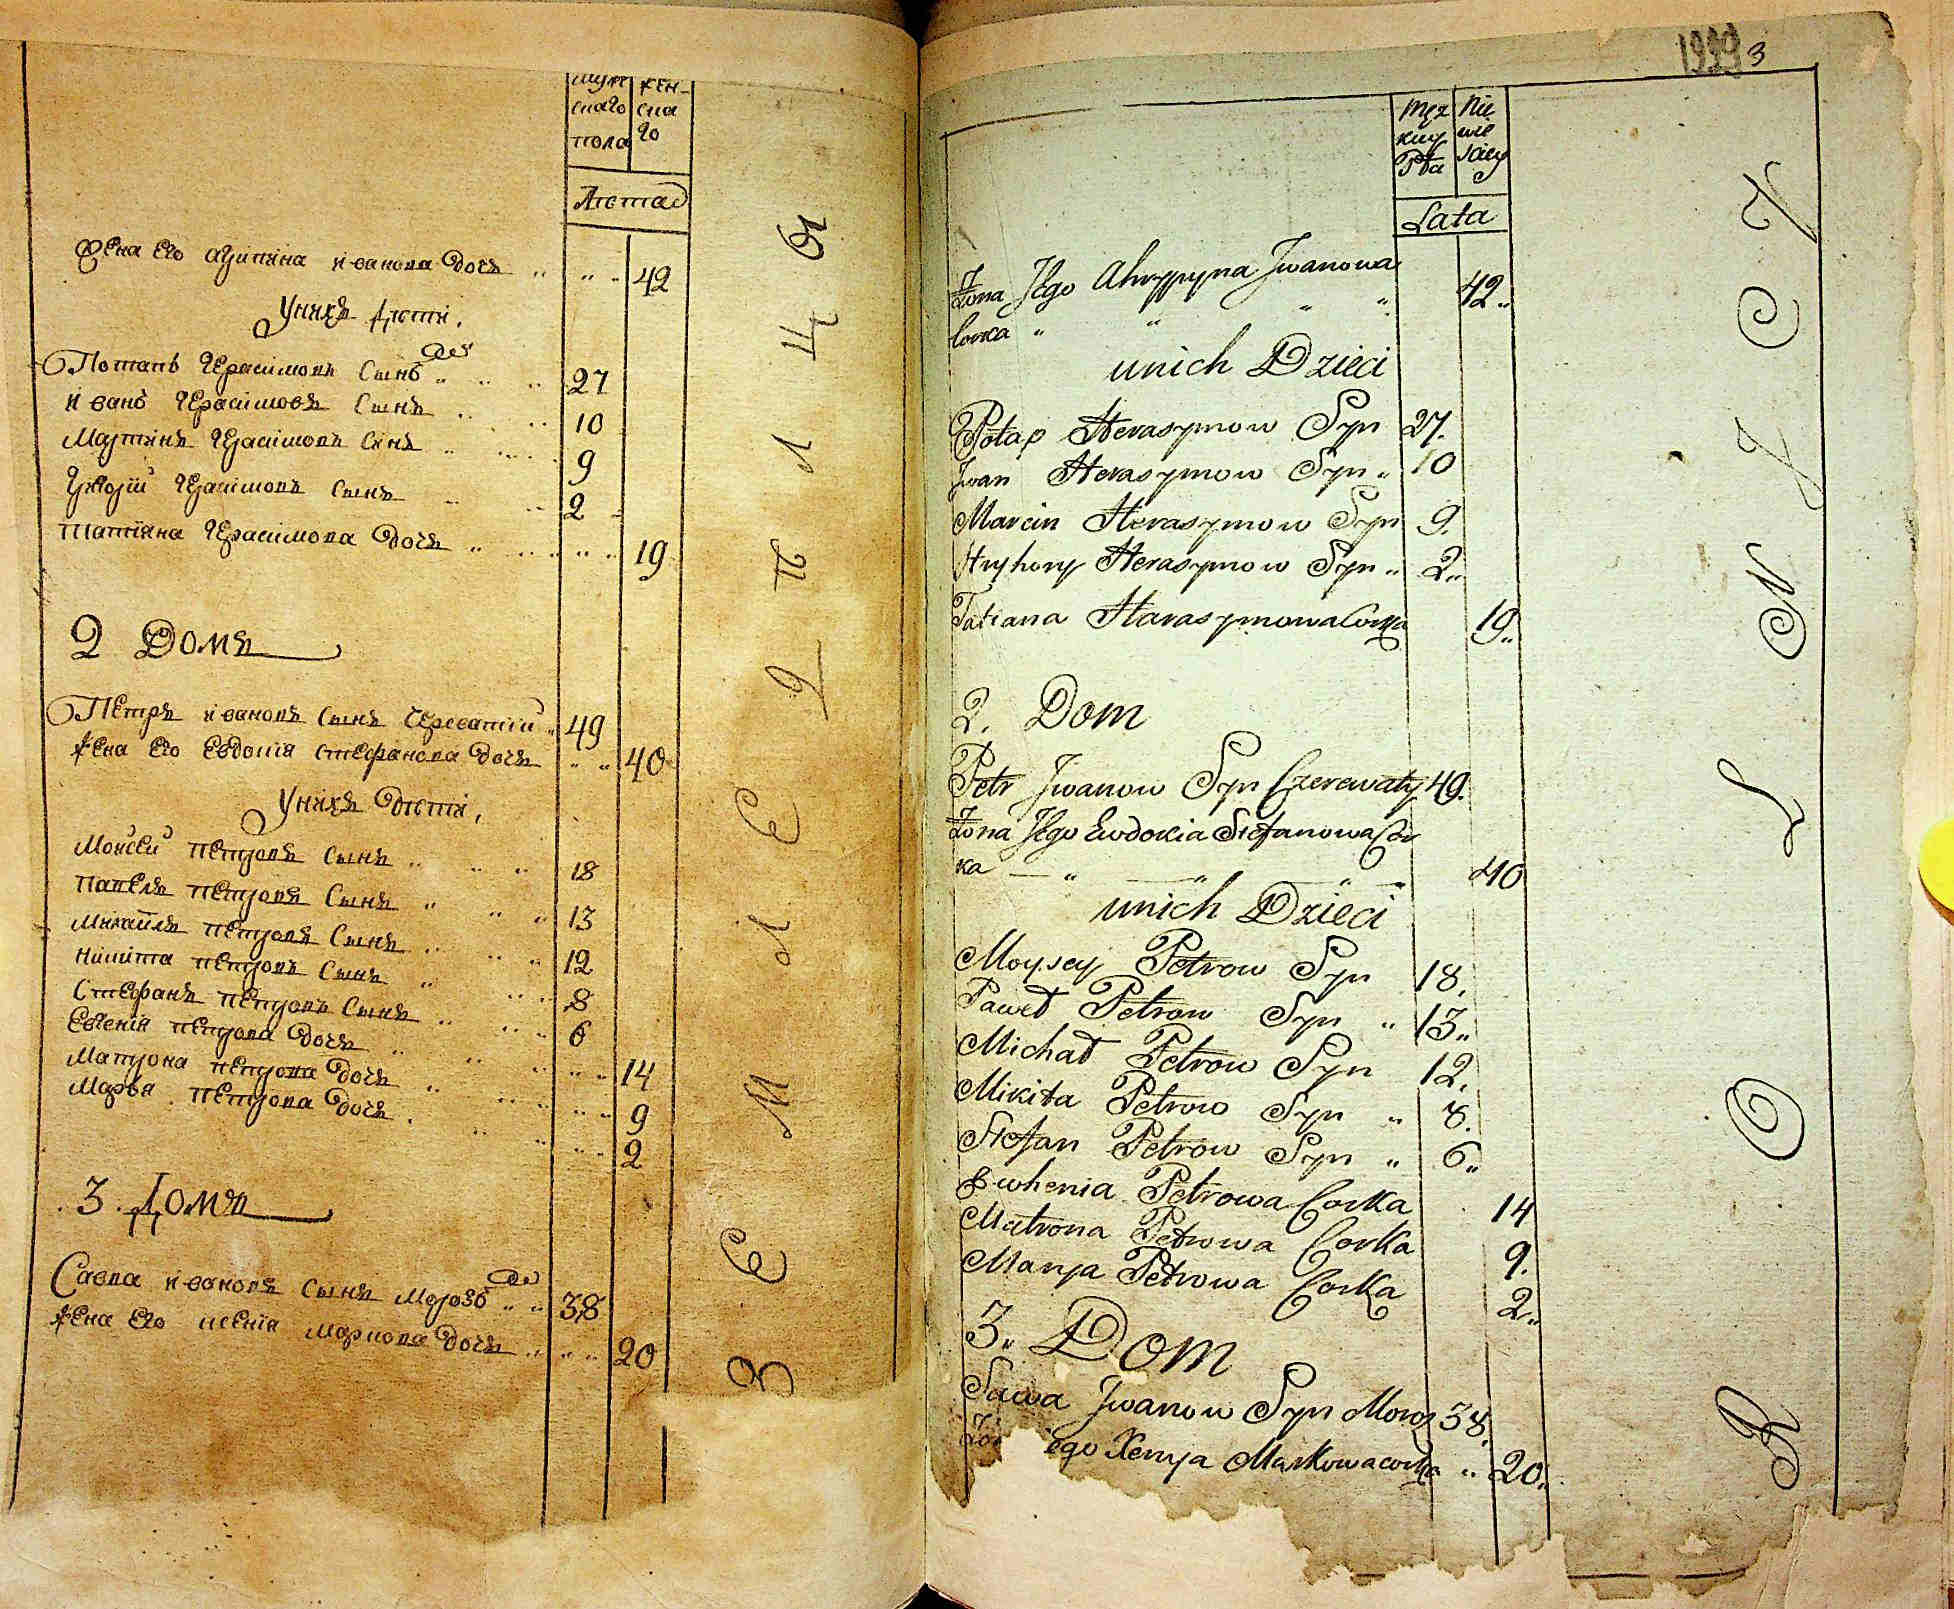 муже
скаго
пола
жен-
ска
го
Лѣта
Жена Его агрипина иванова дочь 42
У них дѣти,
Потапъ Герасимовъ Сынъ 27
иванъ Герасимовъ Сынъ 10
Мартинъ Герасимовъ Синъ 9
Григорій Герасимовъ Сынъ 2
татіяна Герасимова дочь 19
2 Домъ
Петръ ивановъ Сынъ Череватій 49
жена Его Евдокія стефанова дочь 40
У нихъ дѣти,
Мойсей петровъ Сынъ 18
павелъ петровъ Сынъ 13
Михайлъ петровъ Сынъ 12
никита петровъ Сынъ 8
Стефанъ петровъ Сынъ 6
Евгенія петрова дочь 14
Матрона петрова дочь 9
Марья петрова дочь 2
.3. Домъ
Савва ивановъ Сынъ Морозъ 38
жена Его ксенія маркова дочь 20
ЗЕМЛЕДѢЛЦЫ
1999 3
męz
kiey
Płci
Nie
wie
sciey
Lata
Żona Jego Ahrypyna Jwanowa 42
Corka
unich Dzieci
Potap Herasymow Syn 27.
Jwan Herasymow Syn 10
Marcin Herasymow Syn 9.
Hryhory Herasymow Syn 2
Tatiana Harasymowa Corka 19
2. Dom
Petr Jwanow Syn Czerewaty 49.
Żona Jego Ewdokia Stefanowa Cor
ka 40
unich Dzieci
Moysey Petrow Syn 18.
Paweł Petrow Syn 13
Michał Petrow Syn 12.
Mikita Petrow Syn 8.
Stefan Petrow Syn 6
Ewhenia Petrowa Corka 14
Matrona Petrowa Corka 9.
Marya Petrowa Corka 2
3 Dom
Sawa Jwanow Syn Moroz 38.
Żon jego Xenya Markowa corka 20.
ROLNICY